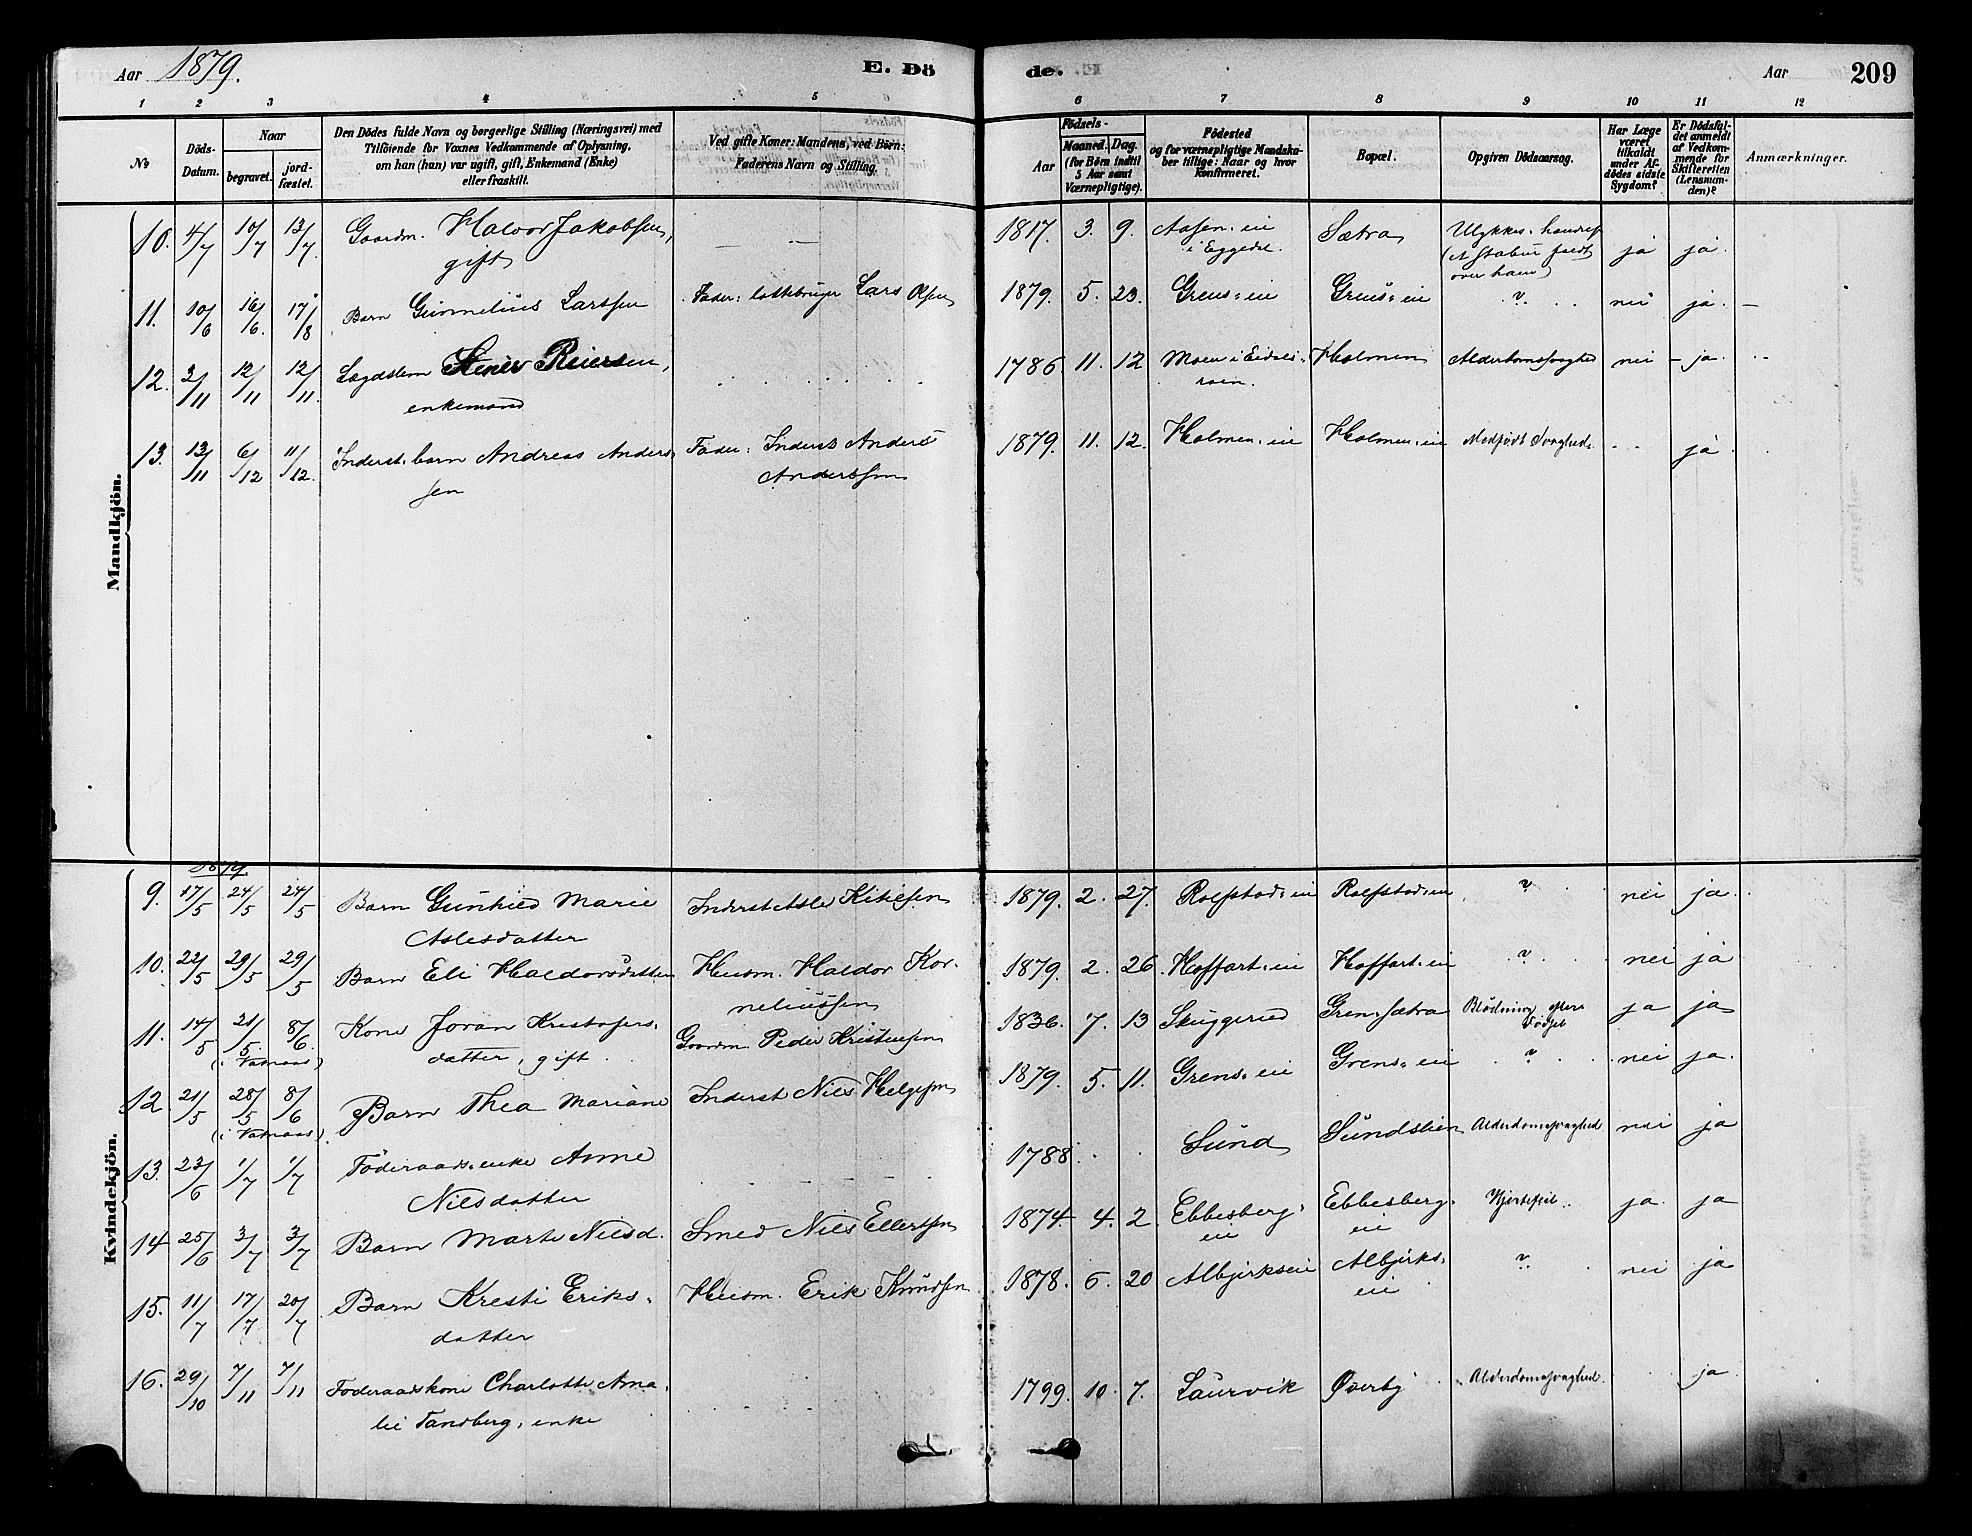 Aar 1879. E. Dö de. Aar 209
1 2 3 4 5 6 7 8 9 10 11 12
No
Döds-Datum.
Naar
begravet.
jord-fæstet.
Den Dödes fulde Navn og borgerlige Stilling (Næringsvei) med
Tilföiende for Voxnes Vedkommende af Oplysning,
om han (hun) var ugift, gift, Enkemand (Enke)
eller fraskilt.
Ved gifte Koner: Mandens, ved Börn:
Faderens Navn og Stilling.
Födsels-
Aar
Maaned. Dag.
(for Börn indtil
5 Aar samt
Værnepligtige).
Födested
og for værnepligtige Mandska-
ber tillige: Naar og hvor
konfirmeret.
Bopæl.
Opgiven Dödsaarsag.
Har Læge
været
tilkaldt
under Af-
dödes sidste
Sygdom?
Er Dödsfal-
det anmeldt
af Vedkom-
mende for
Skifteretten
(Lensman-
den)?
Anmærkninger.
Mandkjön.
10. 4/7 10/7 13/7 Gaardm. Halvor Jakobsen, — — 1817. 3. 9. Aasen-eie Sætra Ulykkes-
gift i Eggedal (et Stabur faldt ja ja.
over ham)
11. 10/6 16/6. 17/8 Barn Gunnelius Larssen Fader: Lars Olsen 1879. 5. 23. Grens-eie Grens-eie ? nei ja. —
12. 3/11 12/11 12/11. Lægdslem Stener Reiersen, 1786. 11. 12 Moen i Holmen Alderdomssvaghed nei — ja
enkemand
13. 13/11 6/12 11/12. Inderst. barn Andreas Anders- Fader: Inderst Anders 1879. 11. 12. Holmen-eie Holmen-eie Medfødt Svaghed ja
sen Anderssen
Kvindekjön.
1879
9. 17/5 24/5 24/5 Barn Gunhild Marie Inderst Asle Kittelsen 1879. 2. 27. Rolfstad-eie Rolfstad-eie ? nei ja.
Aslesdatter
10. 22/5 29/5 29/5 Barn Eli Haldorsdatter Husm. Haldor Kor- 1879. 2. 26. Hoffart-eie Hoffart-eie ? nei ja
neliussen
11. 14/5 21/5. 8/6. Kone Joran Kristofers- Gaardm. Peder Kristensen 1836. 7. 13 Skuggerud Gren-sætra Blødning efter Fødsel ja ja
datter, gift.
12. 21/5 28/5 8/6 Barn Thea Mariane Inderst Niels Helgesen 1879. 5. 11. Grens-eie Grens-eie ? nei ja.
13. 23/6 1/7 1/7 Føderaads-enke Anne 1788. Sund Sundslien Alderdomssvaghed nei ja
Nilsdatter
14 25/6 3/7 3/7 Barn Marte Nilsd. Smed Niels Ellertsen 1874 4. 2. Ebbesberg- Ebbesberg- Hjertefeil ja. ja
eie eie
15. 11/7 17/7 20/7 Barn Kresti Eriks- Husm. Erik Knudsen 1878. 6. 20 Albjerkseie Albjerks- ? nei ja
datter eie
16. 29/10 7/11 7/11 Føderaadskone Charlotte Ama- 1799. 10. 7. Laurvik Øverby Alderdomssvaghed. ja
lie Tandberg, enke